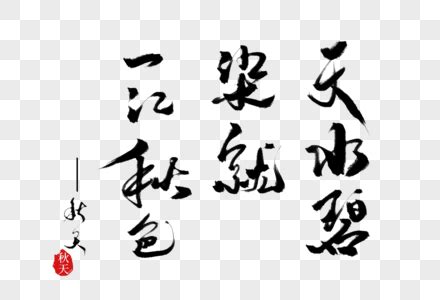 天水碧
染就
一江秋色
——秋天
秋天